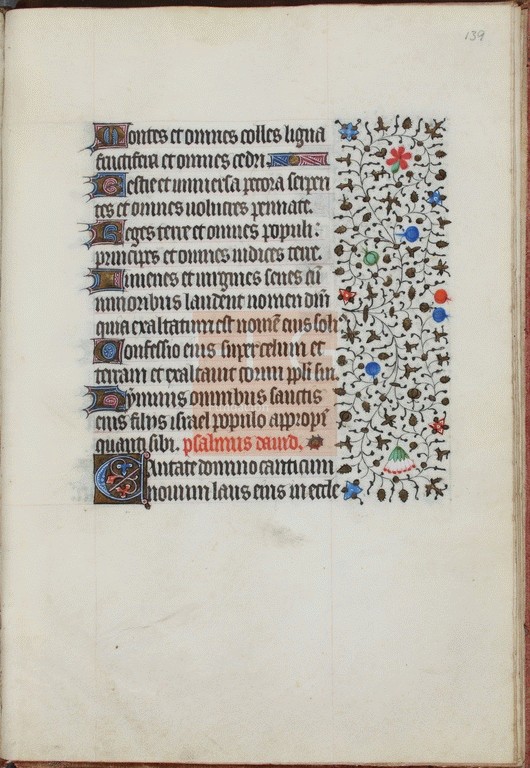 139
Montes et omnes colles ligna
fructifera et omnes cedri.
Bestie et universa pecora serpen
tes et omnes volucres pennate.
Reges terre et omnes populi:
principes et omnes iudices terre.
Iuvenes et virgines senes cū
iunioribus laudent nomen dn̄i
quia exaltatum est nomē eius soli⁹
Confessio eius super celum et
terram et exaltavit cornu ppl̄i sui.
Hymnus omnibus sanctis
eius filiis israel populo appropī
quanti sibi. psalmus david.
CAntate domino canticum
novum laus eius in eccle